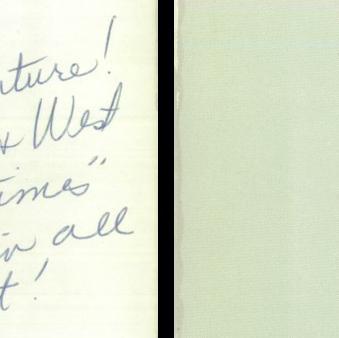 ture!
West
times"
in all
t!